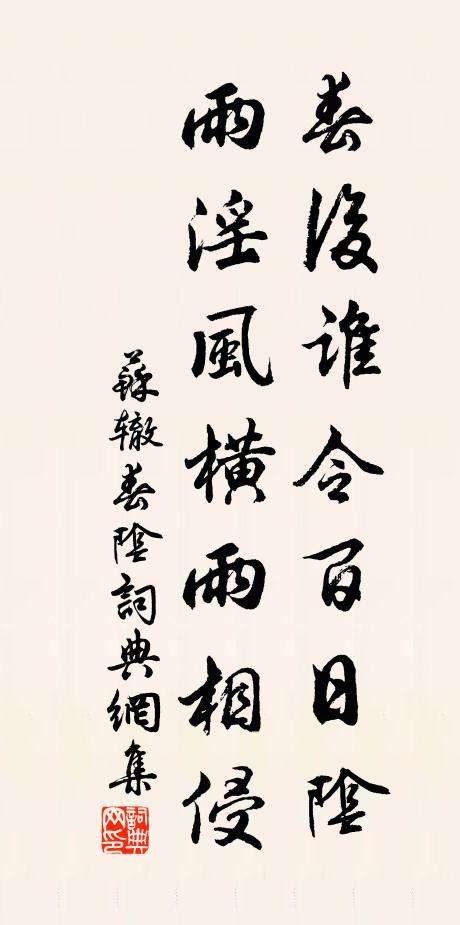 春後誰令百日陰
雨淫風橫兩相侵
蘇轍春陰詞典網集
詞典网印